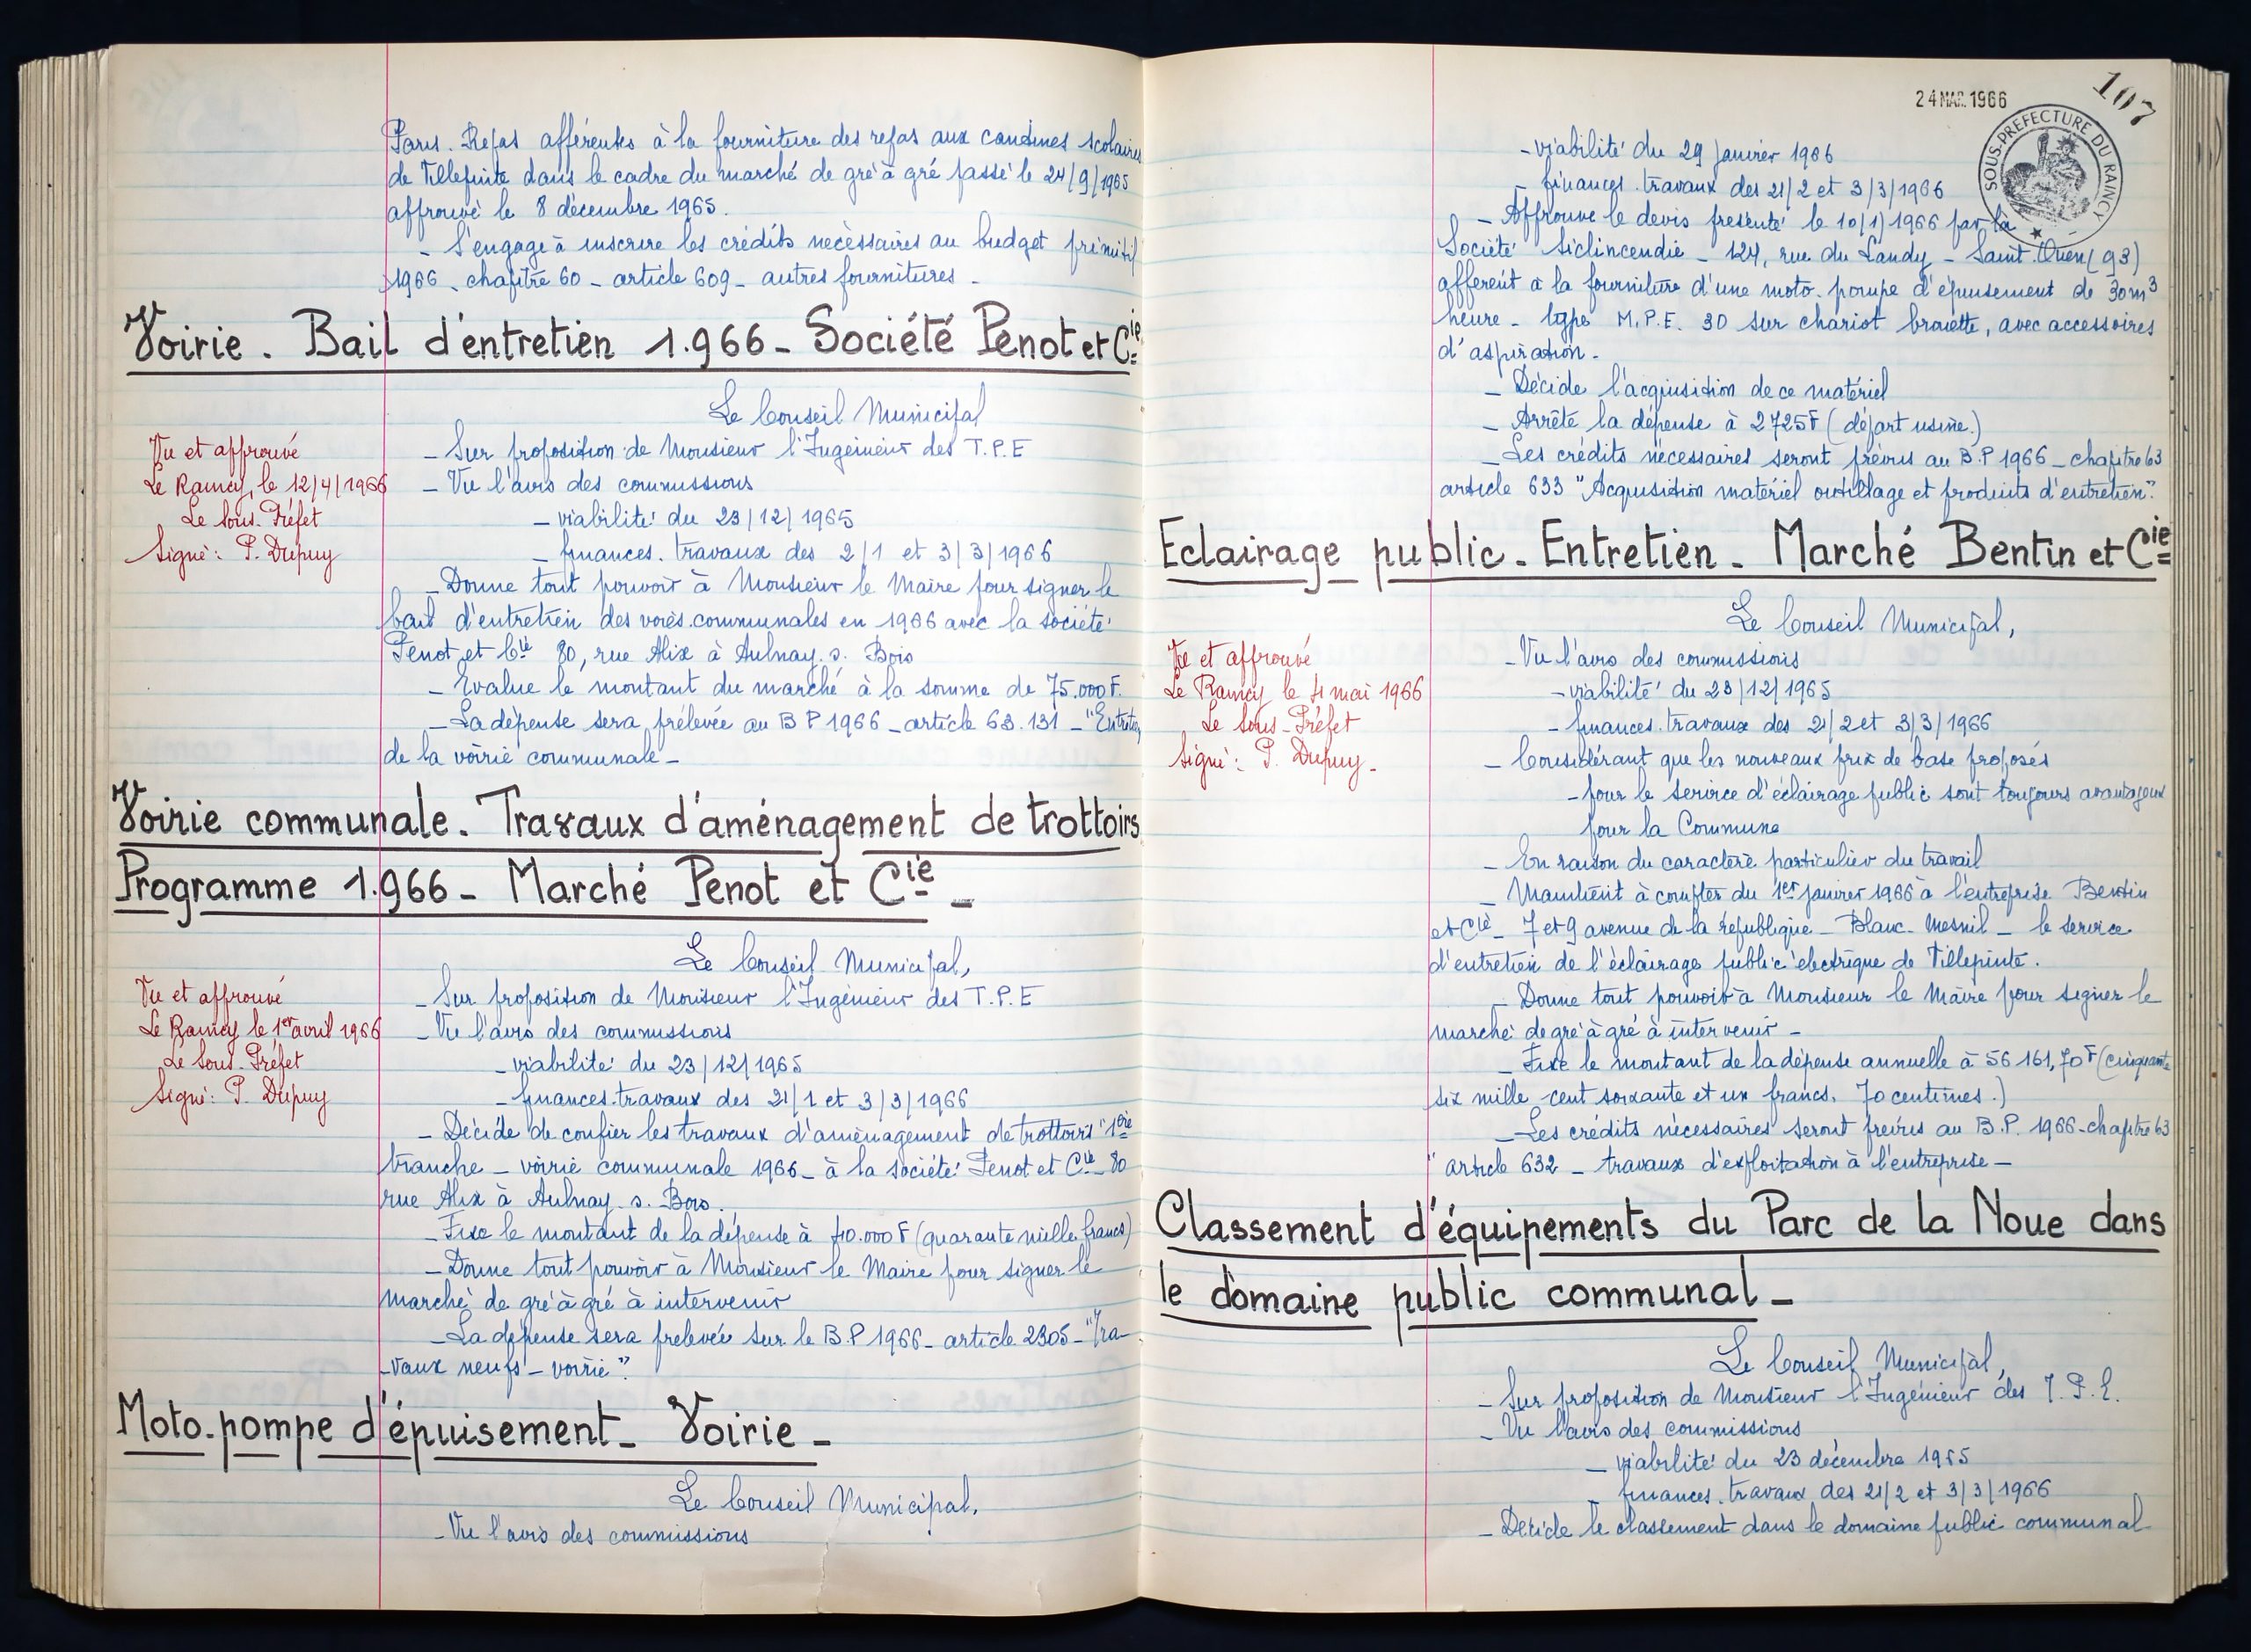 Paris. Repas afférents à la fourniture des repas aux cantines scolaires
de Villepinte dans le cadre du marché de gré à gré passé le 24/9/1965
approuvé le 8 décembre 1965.
- S'engage à inscrire les crédits nécessaires au budget primitif
1966 - chapitre 60 - article 609 - autres fournitures -
Voirie. Bail d'entretien 1.966 - Société Penot et Cie
Le Conseil Municipal
Vu et approuvé
Le Raincy, le 12/4/1966
Le Sous-Préfet
Signé: P. Dupuy
- Sur proposition de Monsieur l'Ingénieur des T.P.E
- Vu l'avis des commissions
- viabilité du 23/12/1965
- finances. travaux des 2/1 et 3/3/1966
- Donne tout pouvoir à Monsieur le Maire pour signer le
bail d'entretien des voies communales en 1966 avec la société
Penot et Cie 80, rue Alix à Aulnay. s. Bois
- Evalue le montant du marché à la somme de 75.000F.
- La dépense sera prélevée au B P 1966 - article 63.131 - "Entretien
de la voirie communale -
Voirie communale. Travaux d'aménagement de trottoirs
Programme 1.966 - Marché Penot et Cie -
Le Conseil Municipal,
Vu et approuvé
Le Raincy le 1er avril 1966
Le Sous-Préfet
Signé: P. Dupuy
- Sur proposition de Monsieur l'Ingénieur des T.P.E
- Vu l'avis des commissions
- viabilité du 23/12/1965
- finances. travaux des 21/1 et 3/3/1966
- Décide de confier les travaux d'aménagement de trottoirs "1ère
tranche - voirie communale 1966 - à la société Penot et Cie - 80
rue Alix à Aulnay. s. Bois.
- Fixe le montant de la dépense à 40.000 F (quarante mille francs)
- Donne tout pouvoir à Monsieur le Maire pour signer le
marché de gré à gré à intervenir
- La dépense sera prélevée sur le B.P 1966 - article 2305 - "Tra-
-vaux neufs - voirie".
Moto-pompe d'épuisement - Voirie -
Le Conseil Municipal,
- Vu l'avis des commissions
24 MAR. 1966
107
SOUS-PREFECTURE DU RAINCY
- viabilité du 29 janvier 1966
- finances. travaux des 21/2 et 3/3/1966
- Approuve le devis présenté le 10/1/1966 par la
Société Siclincendie - 124, rue du Landy - Saint-Ouen (93)
afférent à la fourniture d'une moto-pompe d'épuisement de 30m3
heure - type M.P.E. 30 sur chariot brouette, avec accessoires
d'aspiration -
- Décide l'acquisition de ce matériel
- Arrête la dépense à 2725F (départ usine.)
- Les crédits nécessaires seront prévus au B.P 1966 - chapitre 63
article 633 "Acquisition matériel outillage et produits d'entretien".
Eclairage public - Entretien - Marché Bentin et Cie
Le Conseil Municipal,
Vu et approuvé
Le Raincy le 4 mai 1966
Le Sous-Préfet
Signé: P. Dupuy -
- Vu l'avis des commissions
- viabilité du 23/12/1965
- finances. travaux des 21/2 et 3/3/1966
- Considérant que les nouveaux prix de base proposés
- pour le service d'éclairage public sont toujours avantageux
pour la Commune
- En raison du caractère particulier du travail
- Maintient à compter du 1er janvier 1966 à l'entreprise Bentin
et Cie - 7 et 9 avenue de la république - Blanc-Mesnil - le service
d'entretien de l'éclairage public électrique de Villepinte.
- Donne tout pouvoir à Monsieur le Maire pour signer le
marché de gré à gré à intervenir -
- Fixe le montant de la dépense annuelle à 56 161,70 F (cinquante
six mille cent soixante et un francs. 70 centimes.)
- Les crédits nécessaires seront prévus au B.P. 1966 - chapitre 63
" article 632 - travaux d'exploitation à l'entreprise -
Classement d'équipements du Parc de la Noue dans
le domaine public communal -
Le Conseil Municipal,
- Sur proposition de Monsieur l'Ingénieur des T.P.E.
- Vu l'avis des commissions
- viabilité du 23 décembre 1965
- finances. travaux des 21/2 et 3/3/1966
- Décide le classement dans le domaine public communal